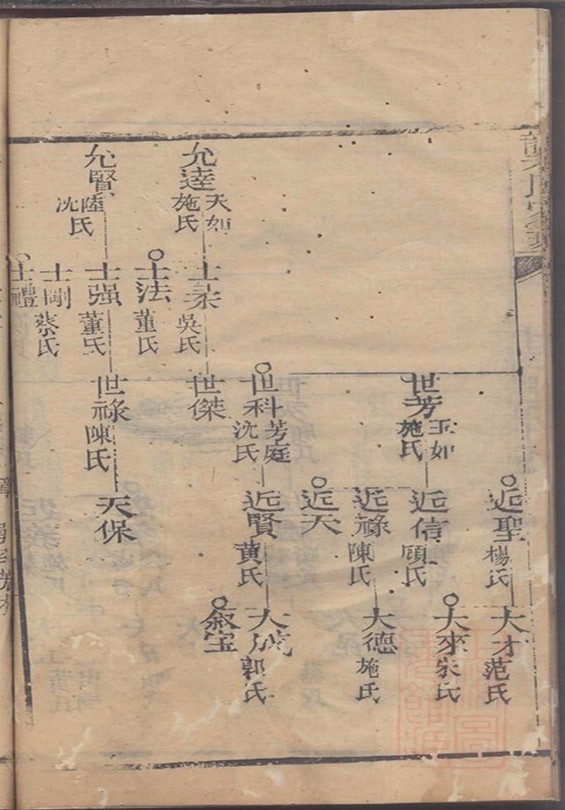 允達 天如 施氏
允賢 陸氏 沈氏
士柔 吳氏
士法 董氏
士强 董氏
士剛 蔡氏
士禮
世芳 玉如 施氏
世科 芳庭 沈氏
世傑
世祿 陳氏
近聖 楊氏
近信 顧氏
近祿 陳氏
近天
近賢 黄氏
天保
大才 范氏
大來 朱氏
大德 施氏
大成 郭氏
叙宝